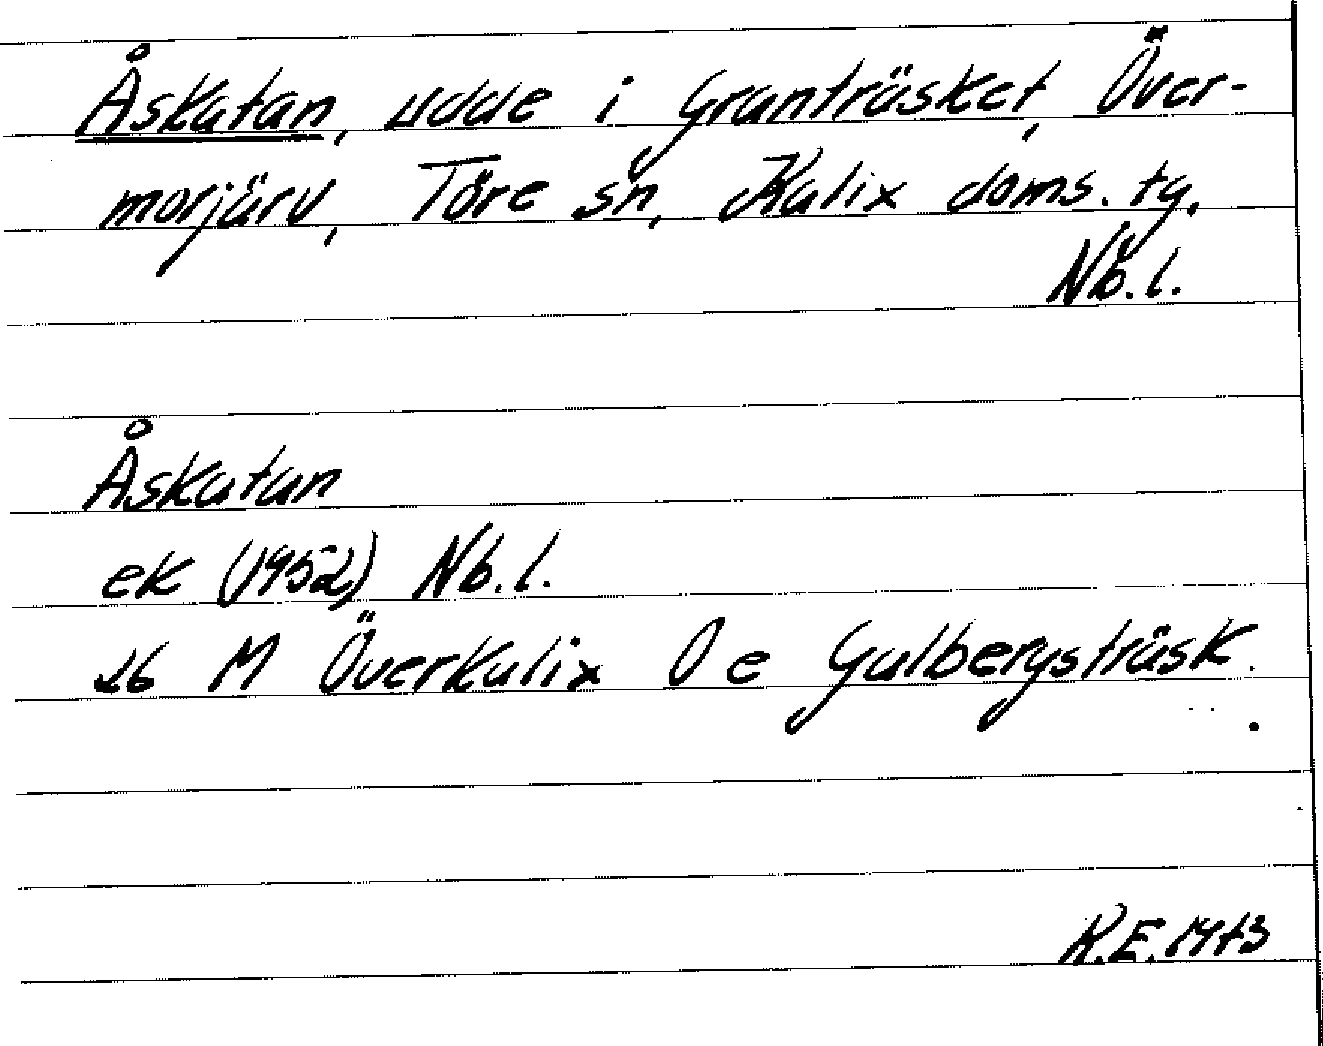 Åskatan, udde i Granträsket, Över-
morjärv, Töre sn, Kalix doms. tg,
Nb. l.
Åskatan
ek (1952) Nb. l.
26 M Överkalix O e Galbergsträsk.
K.E. 1973